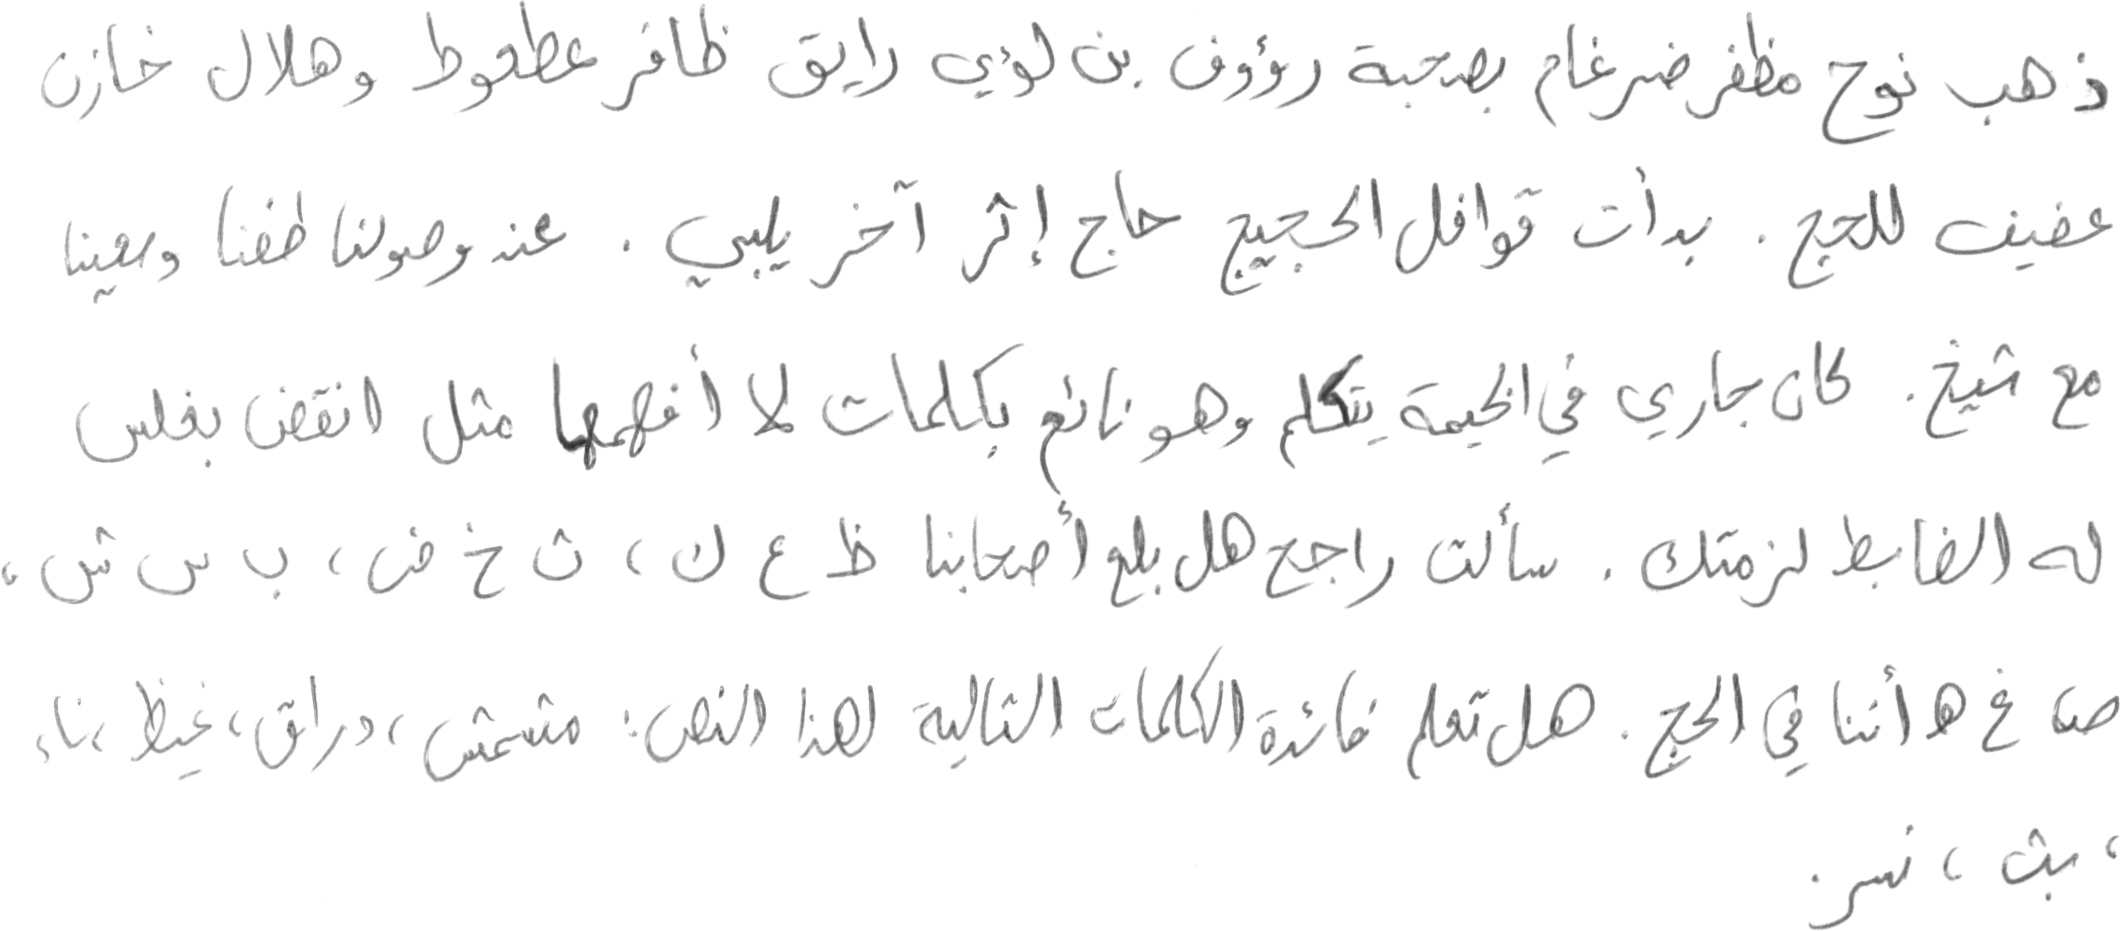 ذهب نوح مظفر ضرغام بصحبة رؤوف بن لؤي رايق ظافر عطعوط وهلال خازن
عفيف للحج . بدأت قوافل الحجيج حاج إثر آخر يلبي . عند وصولنا طفنا وسعينا
مع شيخ . كان جاري في الخيمة يتكلم وهو نائم بكلمات لا أفهمها مثل انقض بغلس
له الضابط لزمتك . سألت راجح هل بلغ أصحابنا ظ ع ك ، ث خ ض ، ب س ش ،
ص غ ه أننا في الحج . هل تعلم فائدة الكلمات التالية لهذا النص : مشمش ، دراق ، غيظ ، ناء
، بث ، نسر .